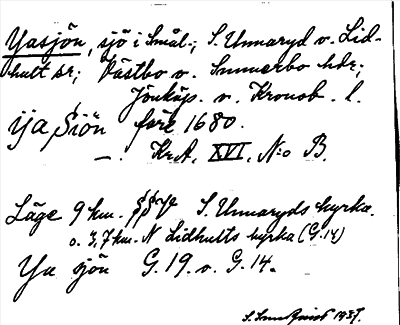 Yasjön, sjö i Smål.; S. Unnaryd o. Lid-
hult sr; Västbo o. Sunnerbo hdr;
Jönköp. o. Kronob. l.
ija Siön före 1680.
—. KrA. XVI. N:o B.
Läge 9 km. SSV S. Unnaryds kyrka.
o. 3,7 km. N Lidhults kyrka (G.14)
Ya sjön G. 19. o. G. 14.
1937.